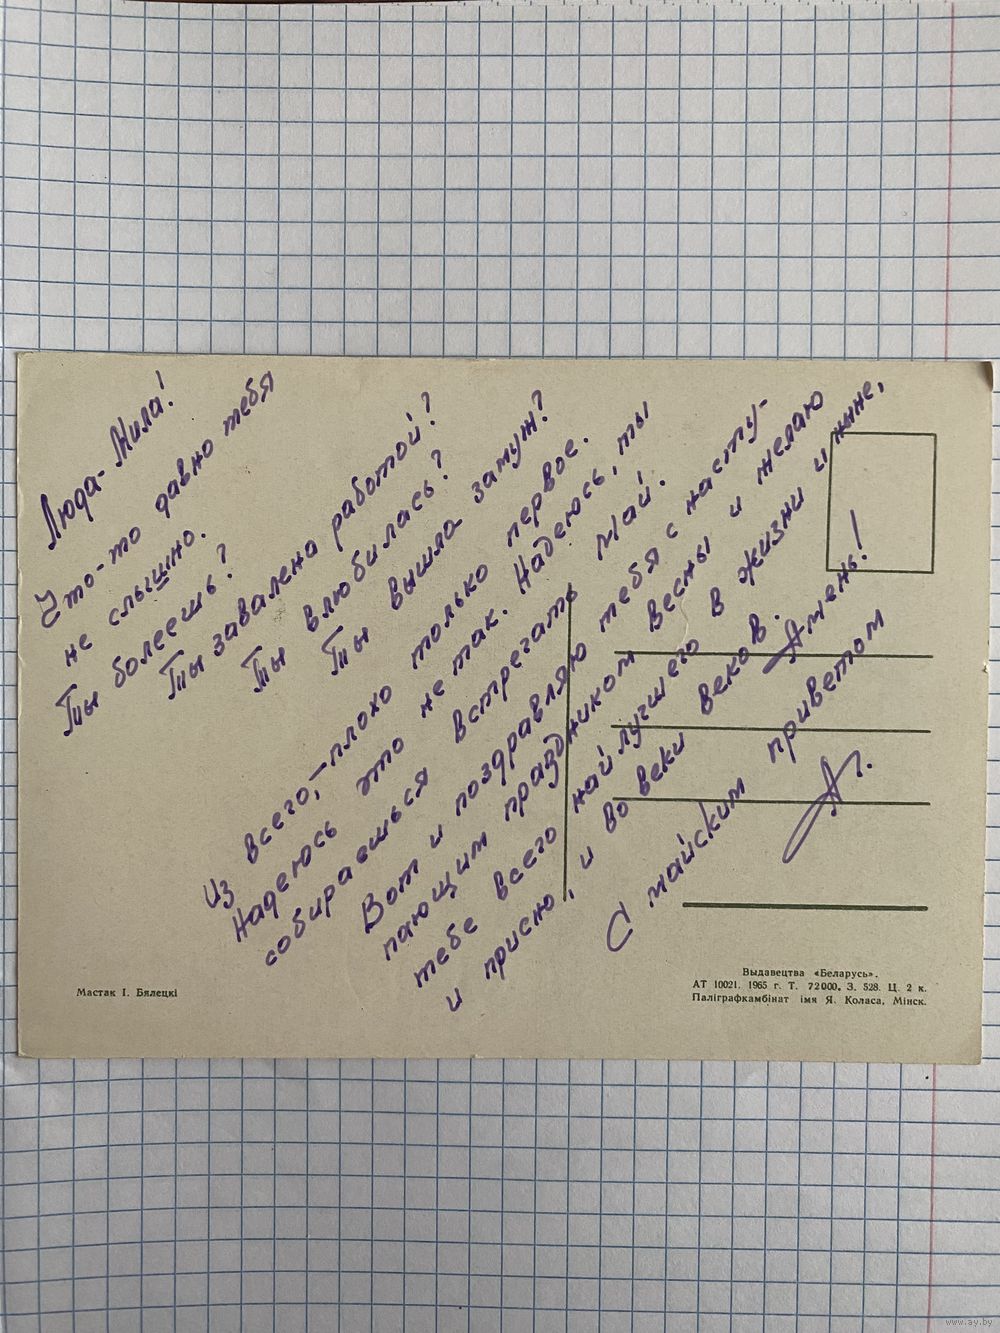 Люда-Мила!
Что-то давно тебя
не слышно.
Ты болеешь?
Ты завалена работой?
Ты влюбилась?
Ты вышла замуж?
Из всего, - плохо только первое.
Надеюсь это не так. Надеюсь, ты
собираешься встречать Май.
Вот и поздравляю тебя с насту-
пающим праздником весны и желаю
тебе всего найлучшего в жизни и ныне,
и присно, и во веки веков.
Аминь!
С майским приветом
А.
Мастак І. Бялецкі
Выдавецтва «Беларусь».
АТ 10021. 1965 г. Т. 72000. З. 528. Ц. 2 к.
Паліграфкамбінат імя Я. Коласа, Мінск.
www.ay.by